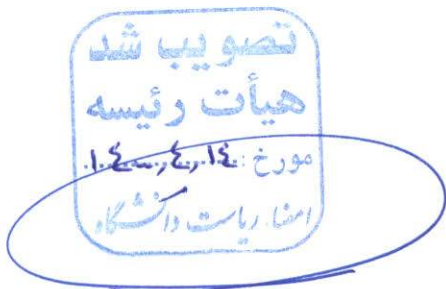 تصویب شد
هیأت رئیسه
مورخ: ۱۴۰۰,۴,۱۴
امضا، ریاست دانشگاه